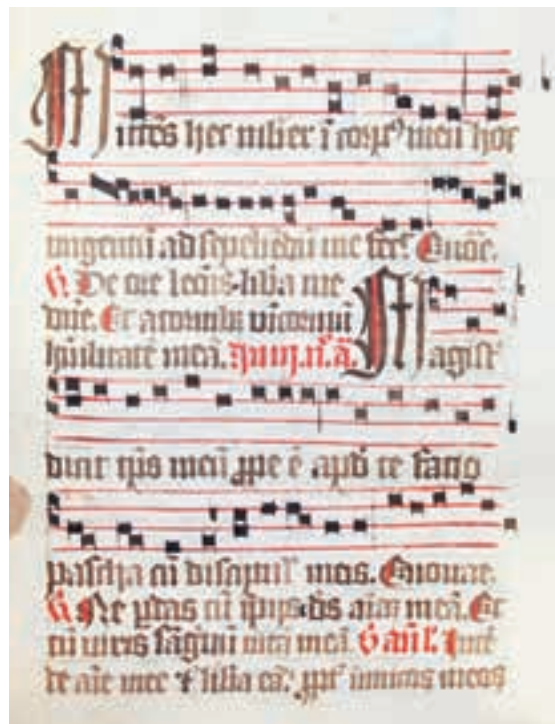 Mittēs hec mulier ī corpꝰ meū hoc
ungentū ad sepeliēdū me fec̄. Euouae.
℣ De ore leonis libia me
dn̄e. Et a cornibꝰ unicornuū
hūilitatē meā.
Magist̄
dicit tp̄s meū ꝓpe ē apud te facio
pascha cū discipul̄ meis. Euouae.
℣ Ne ꝑdas cū īpijs ds aīaꝫ meā. Et
cū uiris sāguinū uitā meā. Intē
de aīe mee ⁊ libia eā. ꝓpt̄ inimicos meos